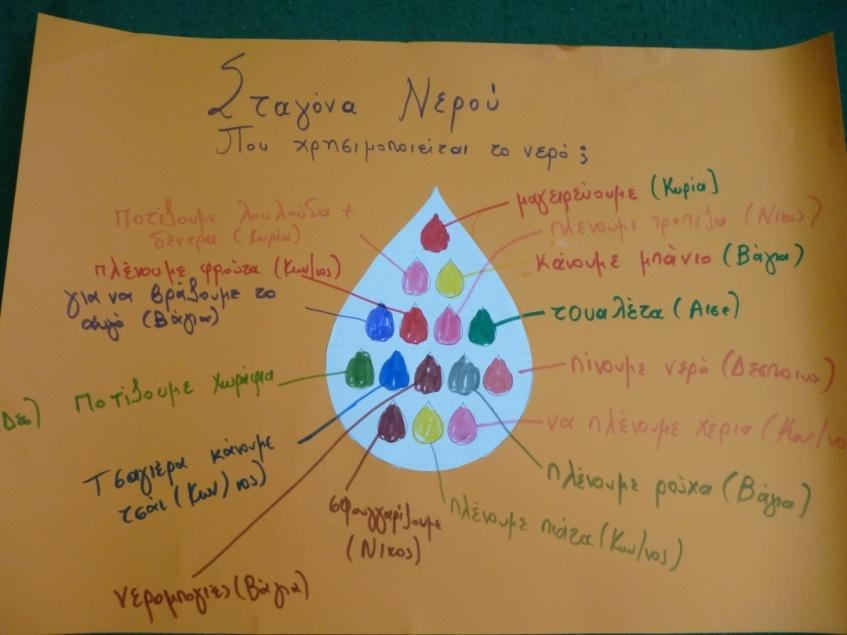 Σταγόνα Νερού
Που χρησιμοποιείται το νερό;
μαγειρεύουμε (Κυρία)
Ποτίζουμε λουλούδια +
δέντρα (Κυρία)
πλένουμε τραπέζια (Νικος)
πλένουμε φρούτα (Κων/νος)
κάνουμε μπάνιο (Βάγια)
για να βράζουμε το
αυγό (Βάγια)
τουαλέτα (Αισε)
Ποτίζουμε χωράφια
πίνουμε νερό (Δεσποινα)
να πλένουμε χέρια (Κων/νο
Τσαγιέρα κάνουμε
τσάι (Κων/νος)
πλένουμε ρούχα (Βάγια)
σφουγγαρίζουμε
(Νικος)
πλένουμε πιάτα (Κων/νος)
νερομπογιές (Βάγια)